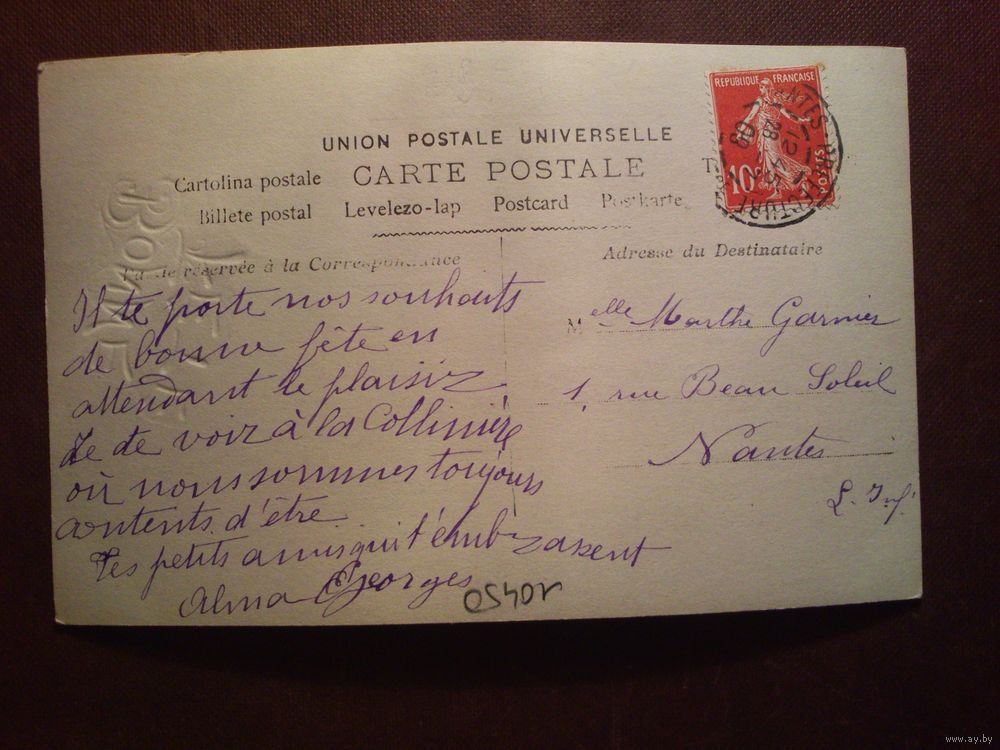 REPUBLIQUE FRANÇAISE
10c
POSTES
UNION POSTALE UNIVERSELLE
CARTE POSTALE
Cartolina postale
Billete postal Levelezo-lap Postcard Postkarte
Partie réservée à la Correspondance
Adresse du Destinataire
Il te porte nos souhaits
de bonne fête en
attendant le plaisir
de te voir à la Collinière
où nous sommes toujours
contents d'être
Tes petits amis qui t'embrassent
Alma Georges
Melle Marthe Garnier
1, rue Beau Soleil
Nantes
L. Inf.
10450
www.ay.by